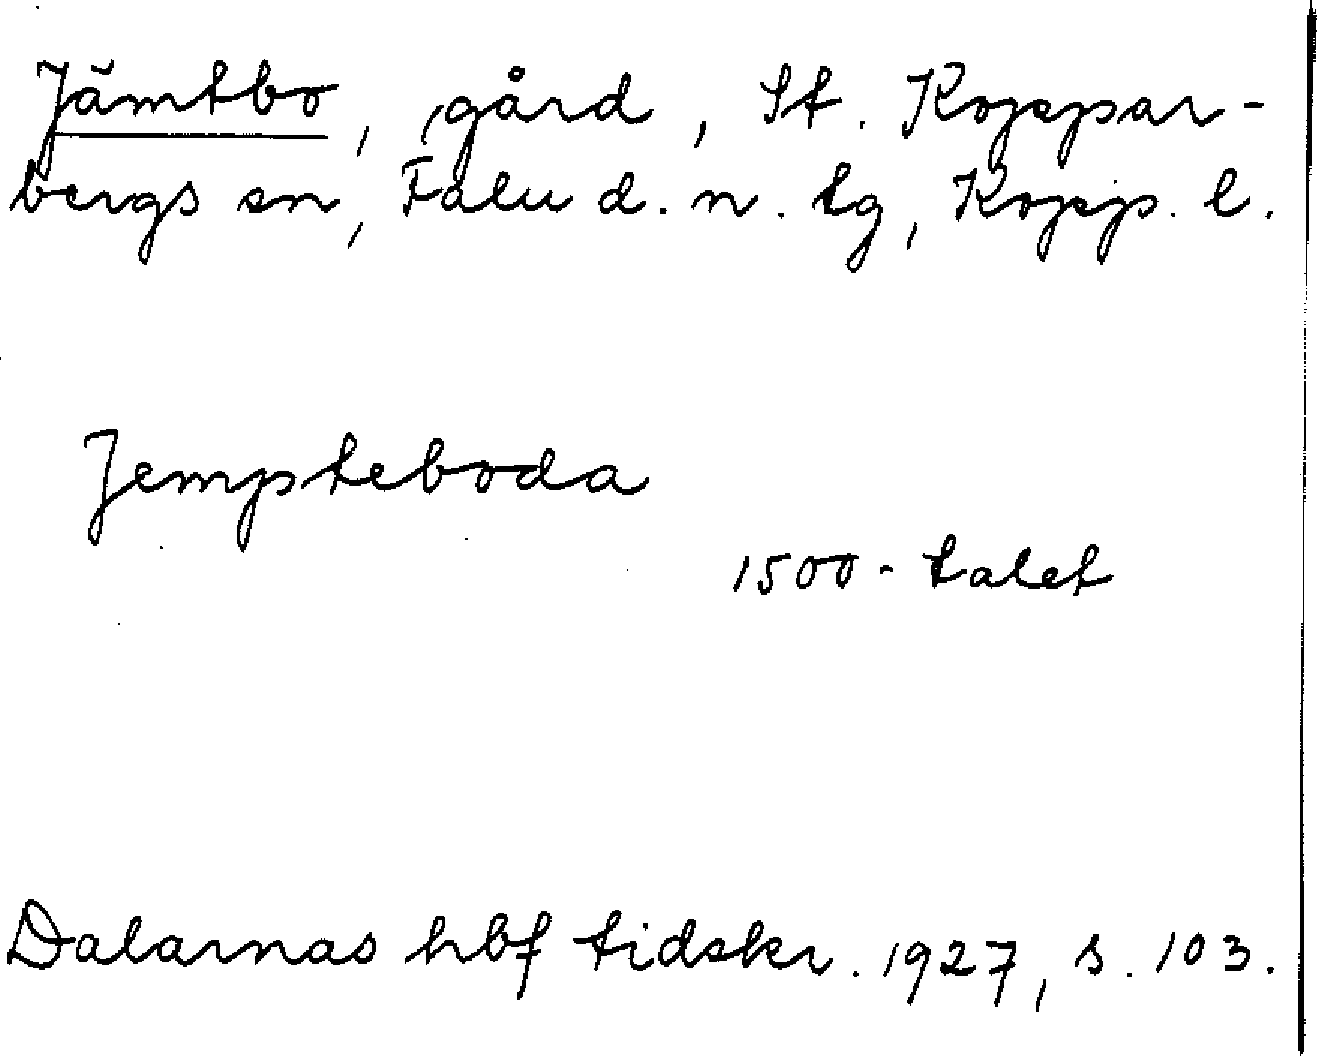 Jämtbo, gård, St. Koppar-
bergs sn, Falu d. n. tg, Kopp. l.
Jempteboda
1500-talet
Dalarnas hbf tidskr. 1927, s. 103.